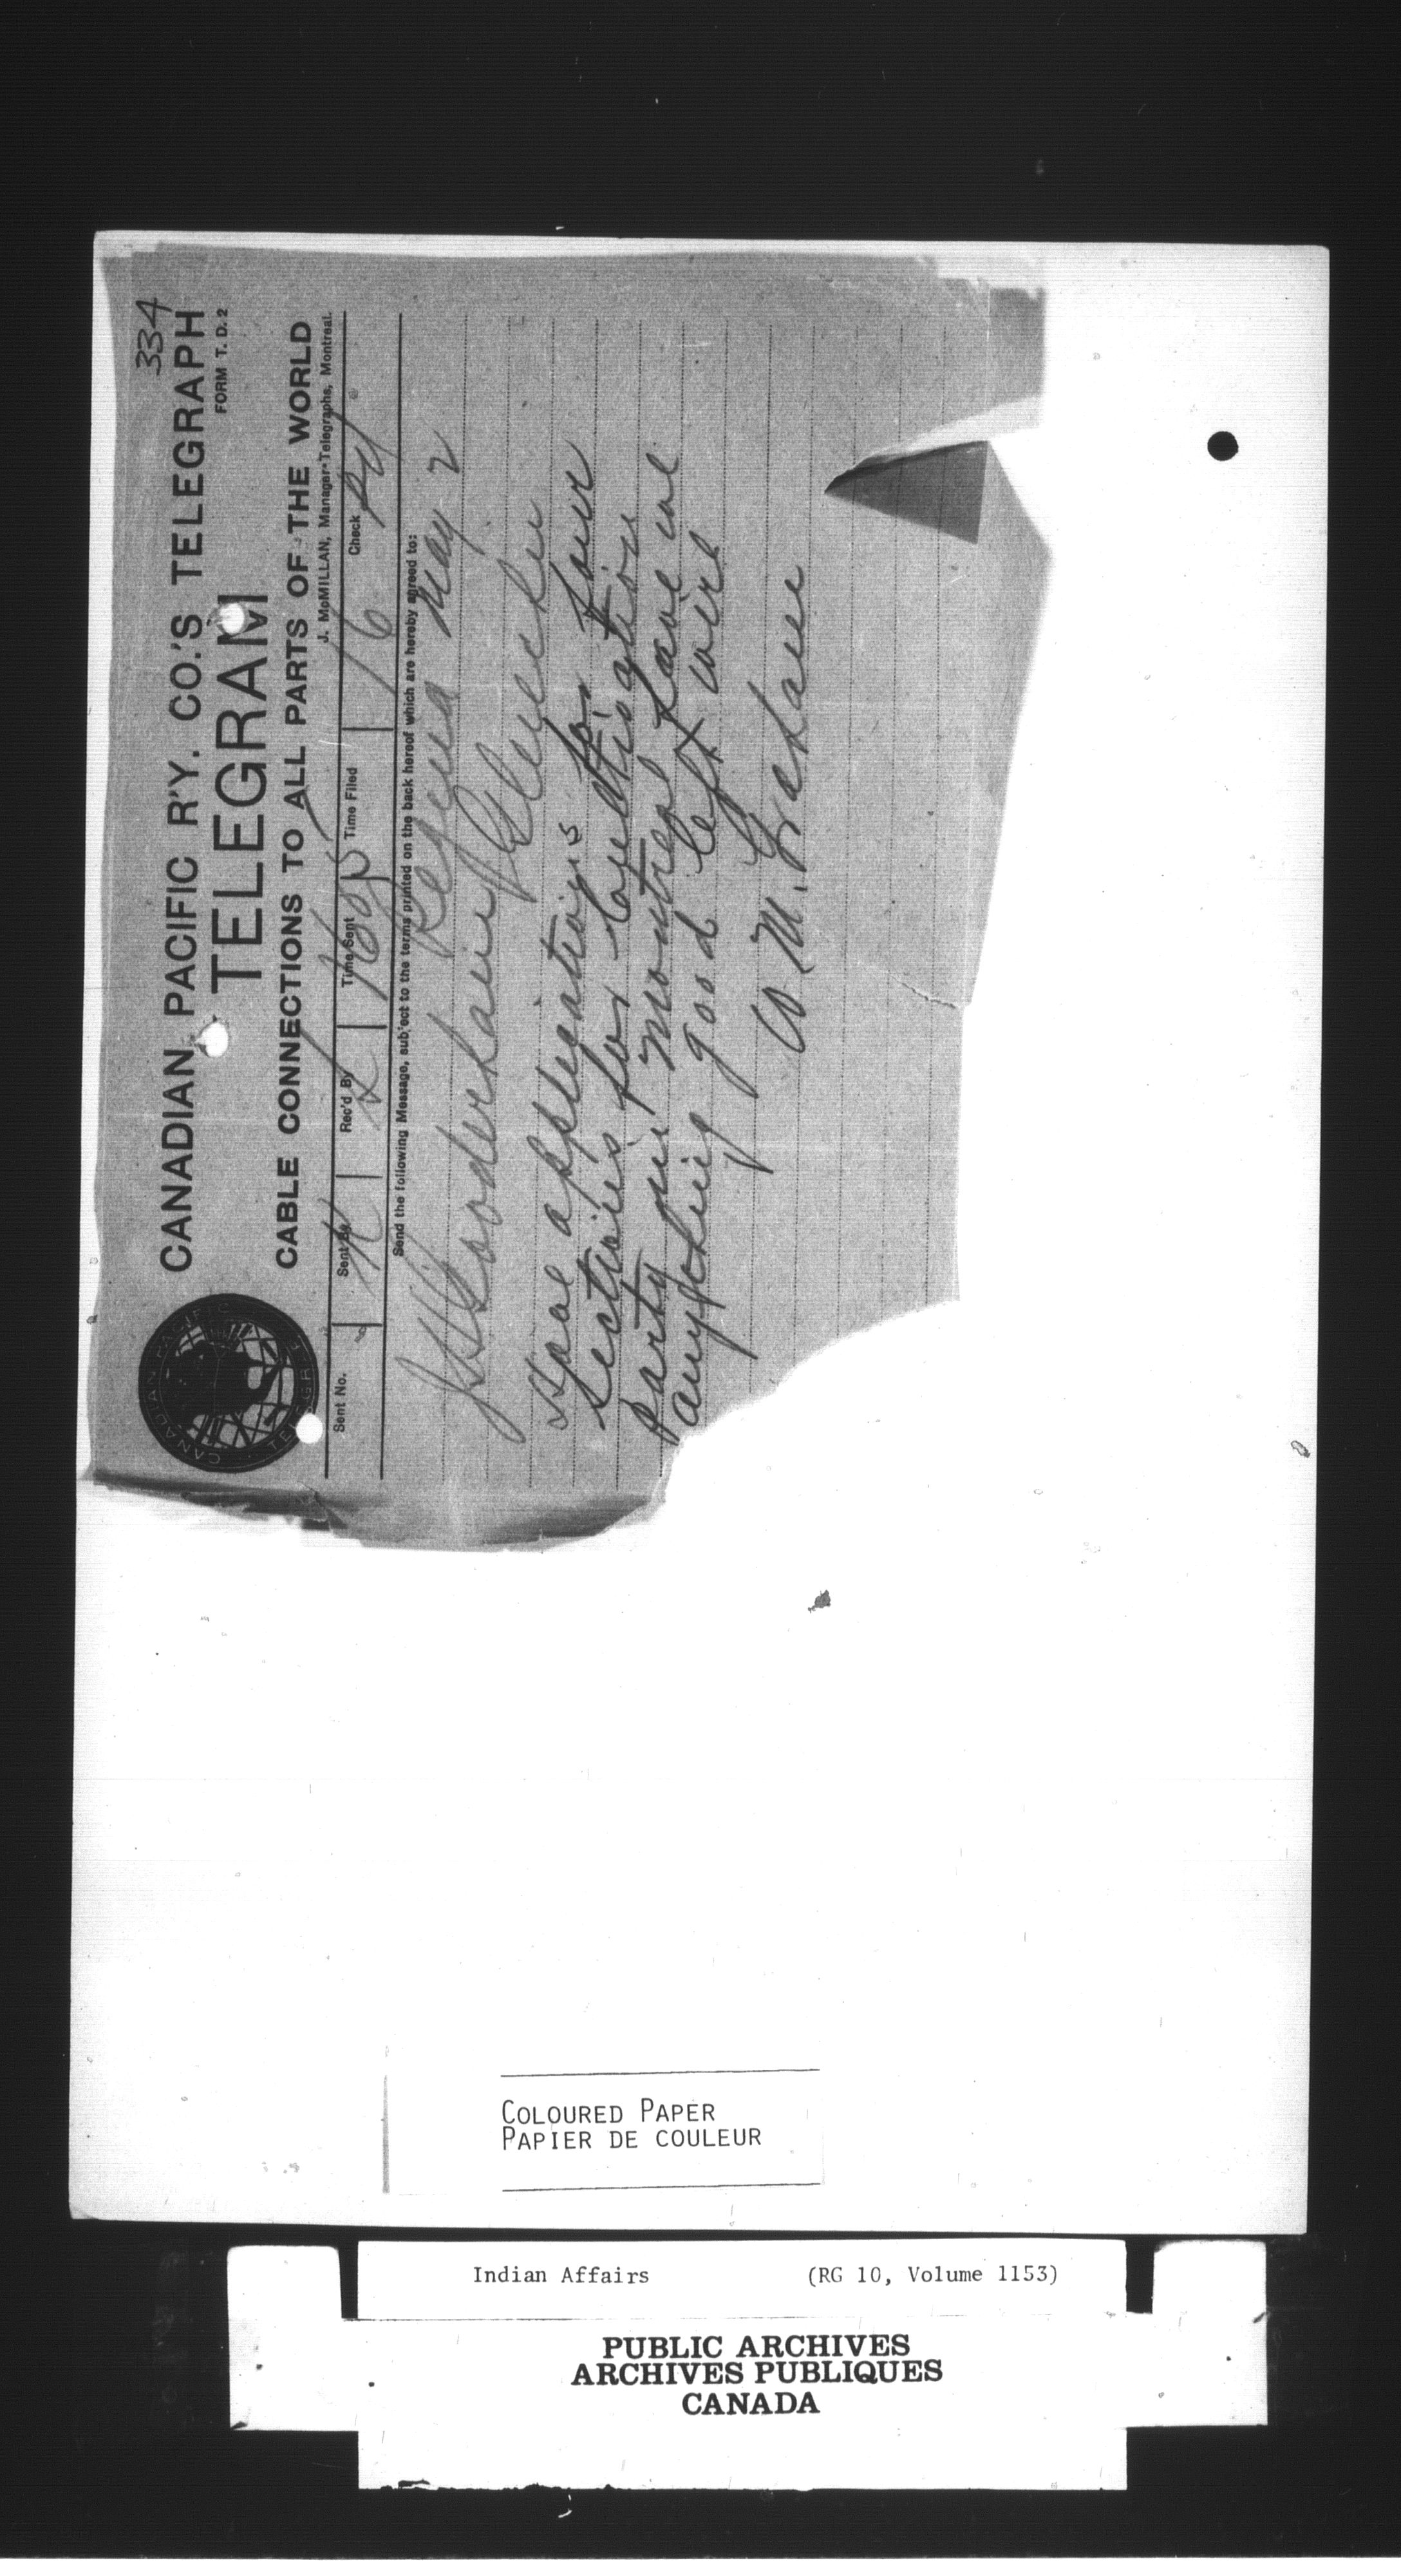 334
CANADIAN PACIFIC R'Y. CO.'S TELEGRAPH
TELEGRAM
FORM T. D. 2
CABLE CONNECTIONS TO ALL PARTS OF THE WORLD
J. McMILLAN, Manager Telegraphs, Montreal.
CANADIAN PACIFIC
Sent No. Sent By Rec'd By Time Sent Time Filed Check
K 16 pd
Send the following Message, subject to the terms printed on the back hereof which are hereby agreed to:
Regina May 2
J H Gooderham Gleichen
Have applications for four
sections for cultivation
party in montreal have we
anything good left wire
W. M. Graham
COLOURED PAPER
PAPIER DE COULEUR
Indian Affairs (RG 10, Volume 1153)
PUBLIC ARCHIVES
ARCHIVES PUBLIQUES
CANADA